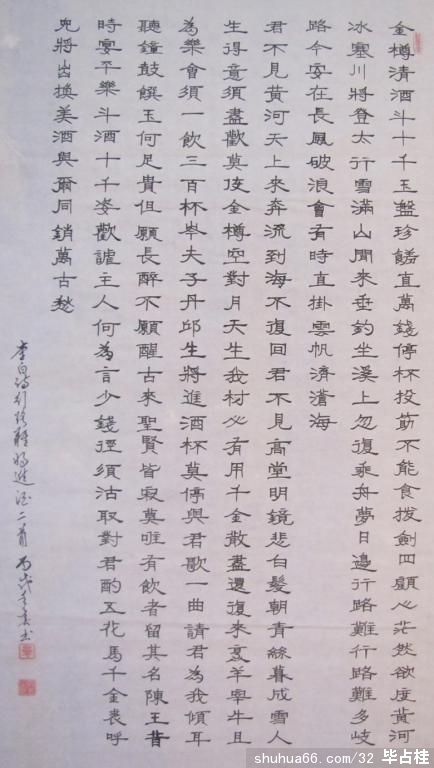 金樽清酒斗十千玉盤珍饈直萬錢停杯投筯不能食拔劍四顧心茫然欲度黃河
冰塞川將登太行雪滿山閒來垂釣坐溪上忽復乘舟夢日邊行路難行路難多歧
路今安在長風破浪會有時直掛雲帆濟滄海
君不見黃河天上來奔流到海不復回君不見高堂明鏡悲白髮朝青絲暮成雪人
生得意須盡歡莫使金樽空對月天生我材必有用千金散盡還復來烹羊宰牛且
為樂會須一飲三百杯岑夫子丹邱生將進酒杯莫停與君歌一曲請君為我傾耳
聽鐘鼓饌玉何足貴但願長醉不願醒古來聖賢皆寂莫唯有飲者留其名陳王昔
時宴平樂斗酒十千姿歡謔主人何為言少錢徑須沽取對君酌五花馬千金裘呼
兒將出換美酒與爾同銷萬古愁
李白诗行路難將進酒二首 丙戌 書
shuhua66.com/32 毕占桂